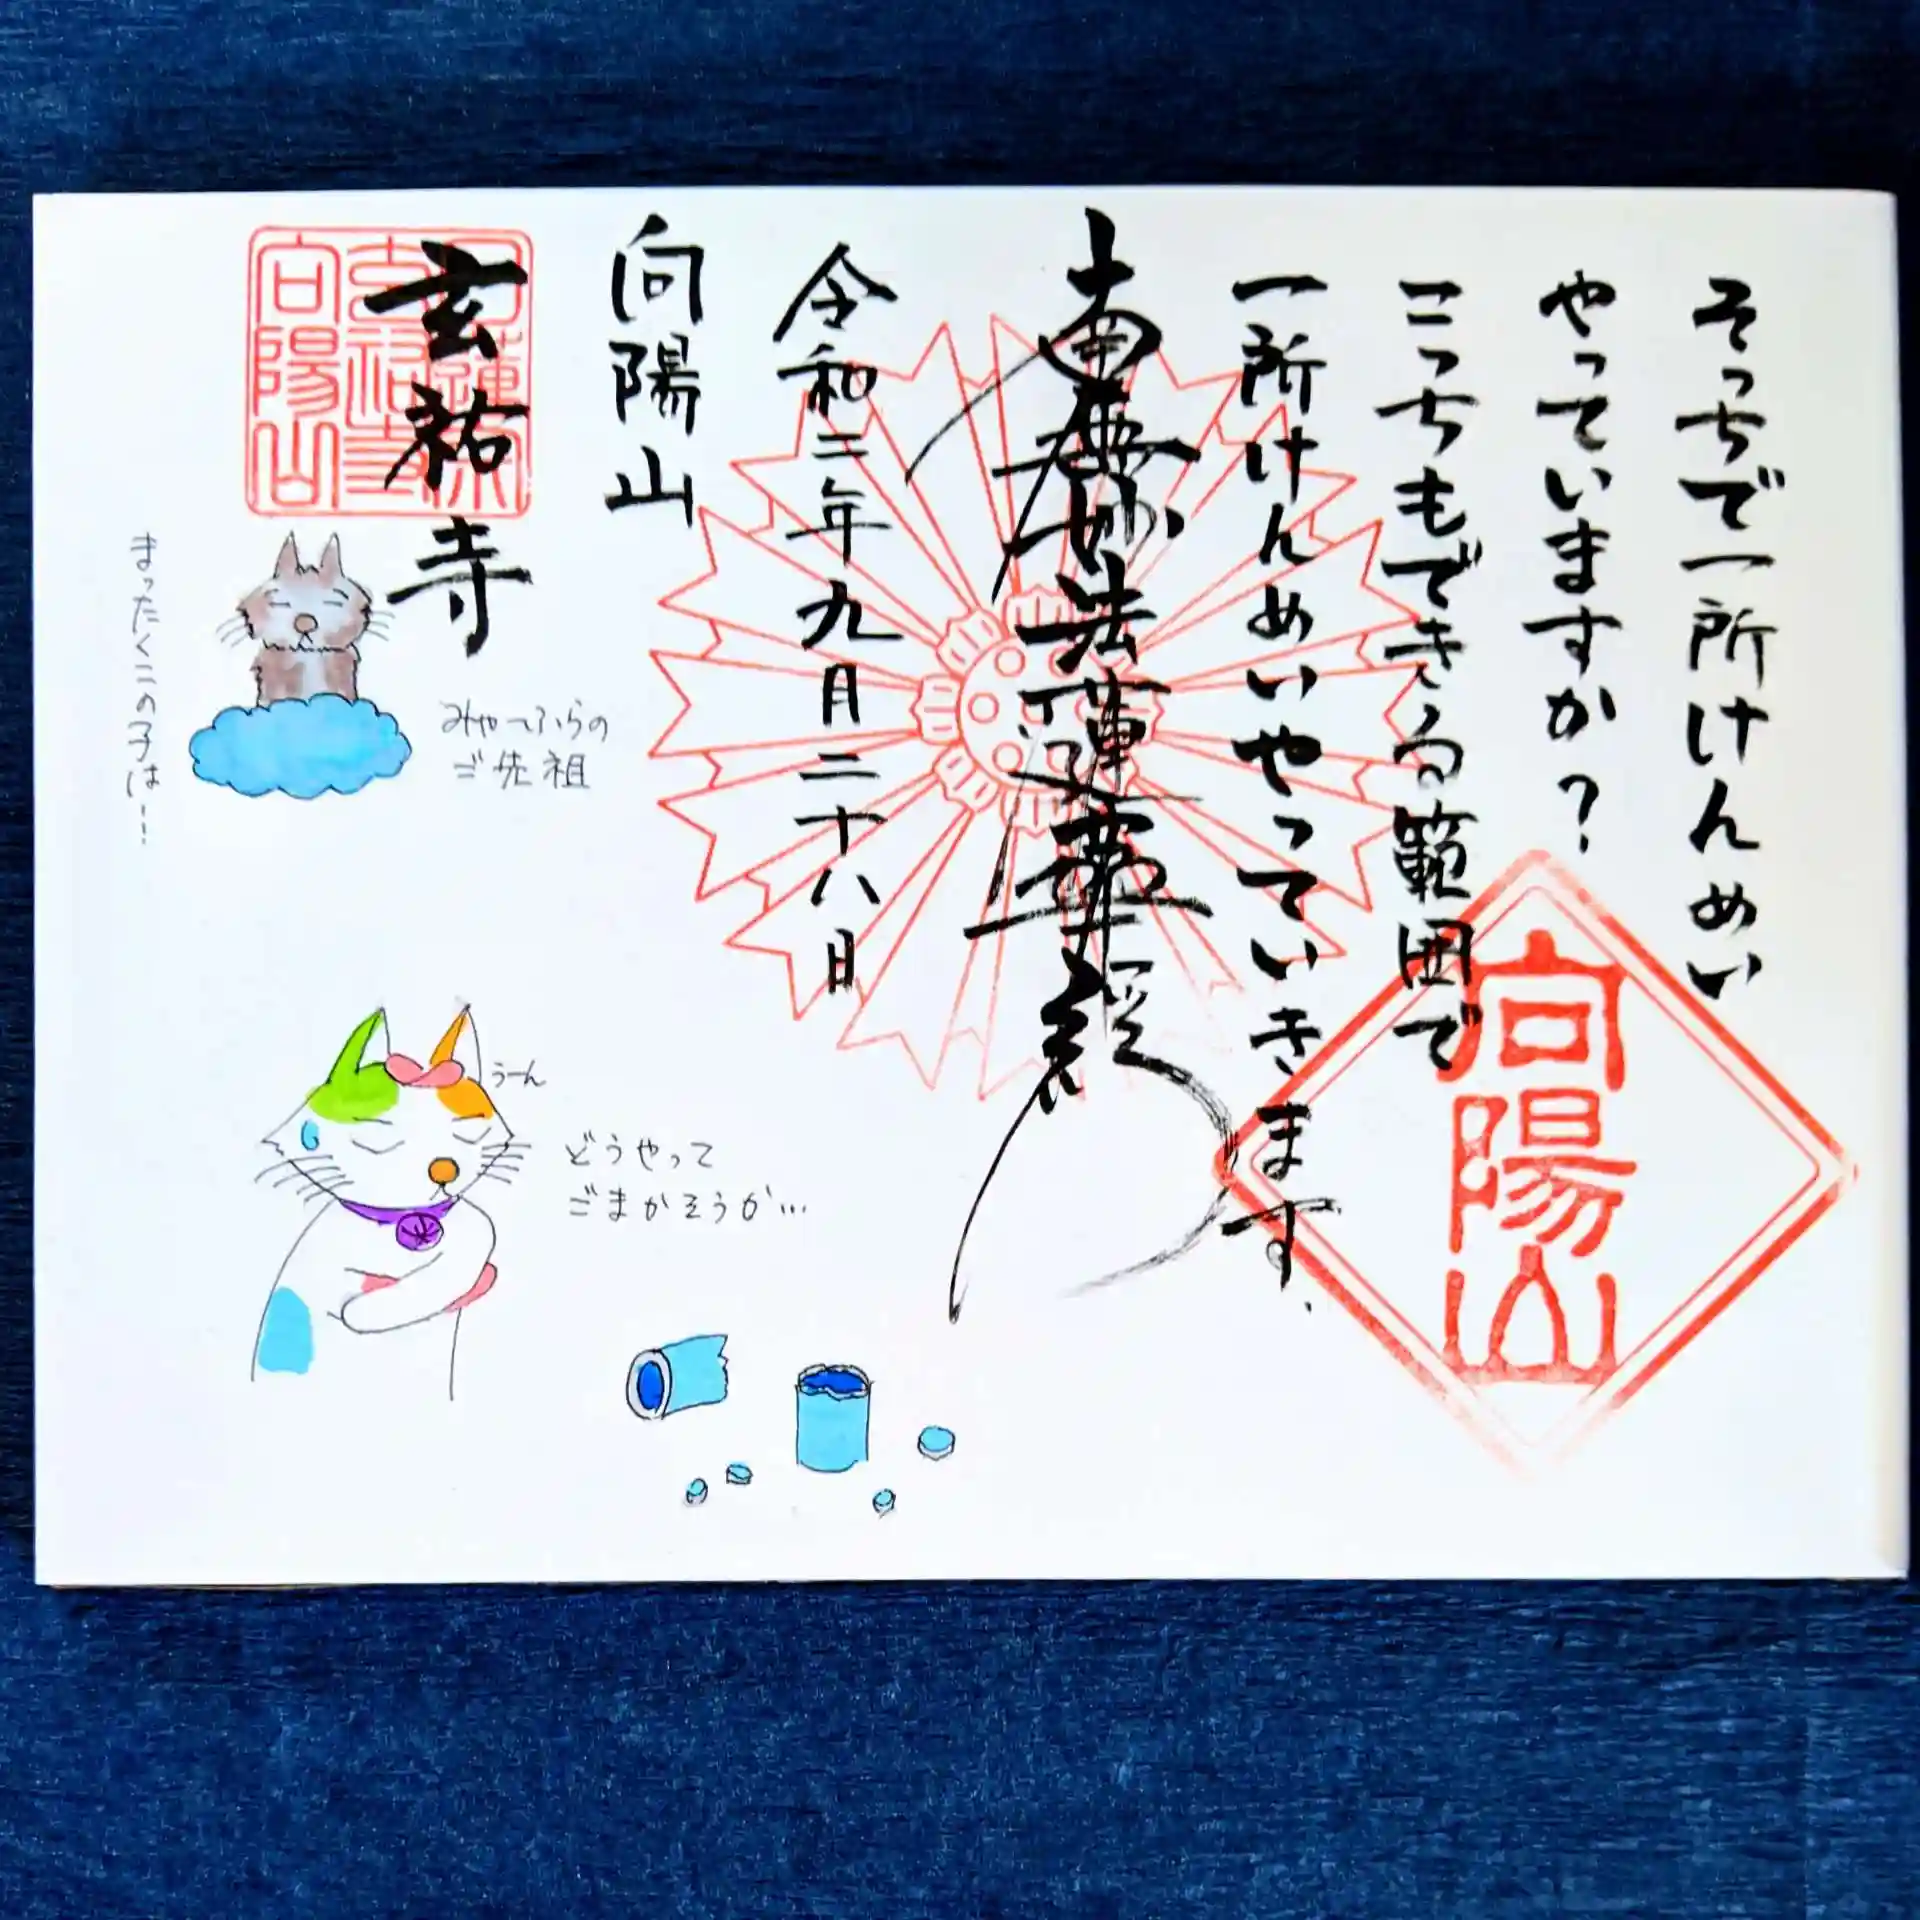 そっちで一所けんめい
やっていますか？
こっちもできる範囲で
一所けんめいやっていきます.
南無妙法蓮華経
令和二年九月二十八日
向陽山
玄祐寺
日蓮宗
玄祐寺
向陽山
向陽山
みゃーふらの
ご先祖
まったくこの子は…!
うーん
どうやって
ごまかそうか…